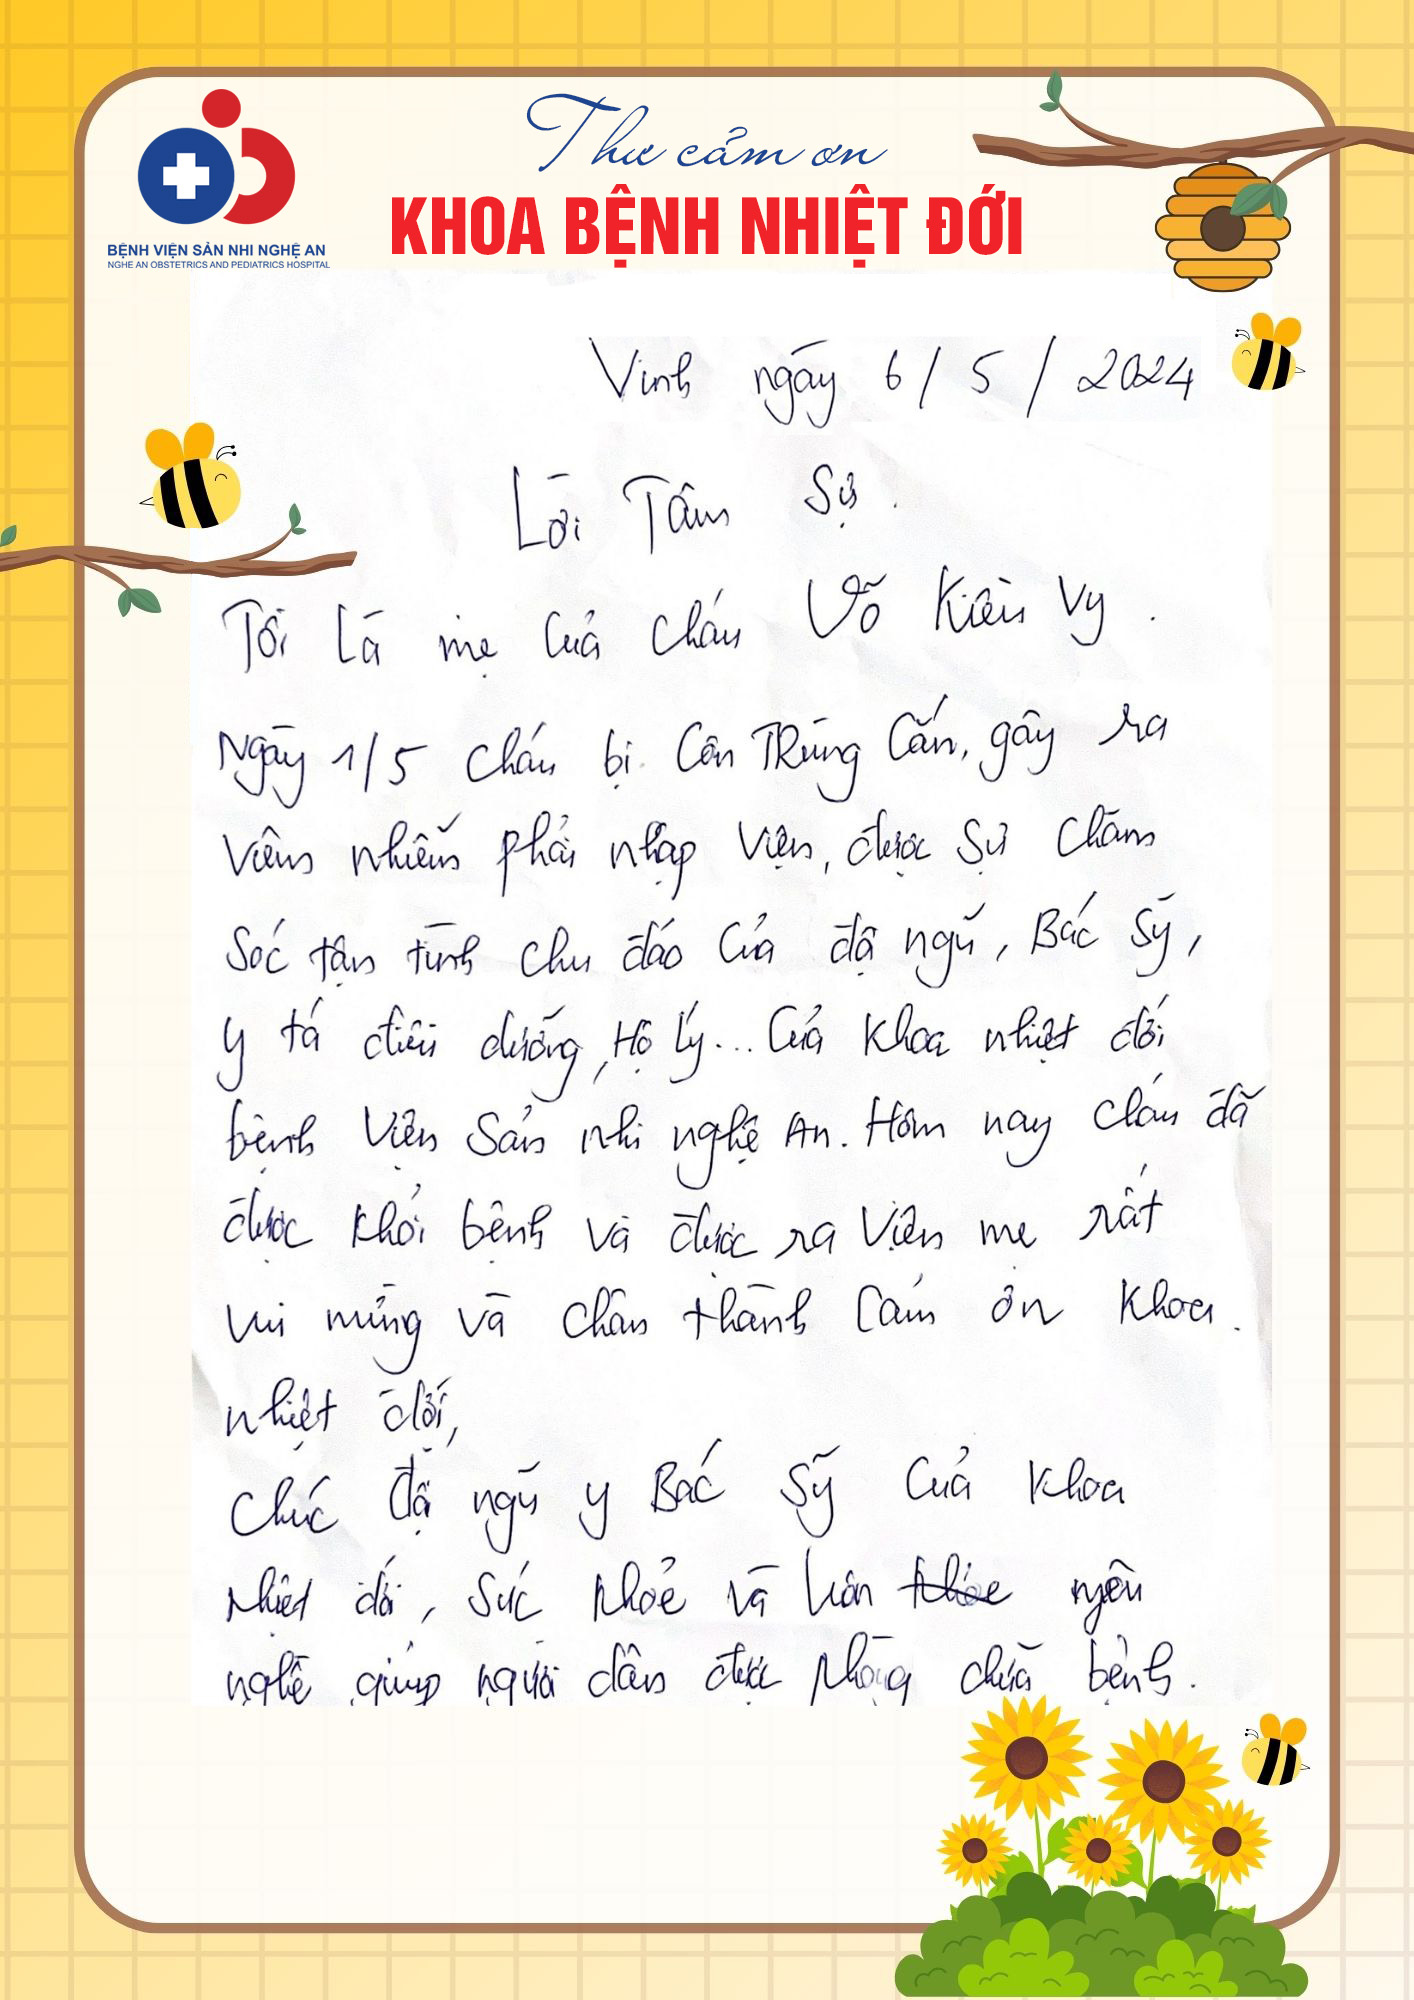 Thư cảm ơn
KHOA BỆNH NHIỆT ĐỚI
BỆNH VIỆN SẢN NHI NGHỆ AN
NGHE AN OBSTETRICS AND PEDIATRICS HOSPITAL
Vinh ngày 6/5/2024
Lời Tâm Sự.
Tôi Là mẹ Của cháu Võ Kiều Vy.
Ngày 1/5 cháu bị Côn TRùng Cắn, gây ra
Viêm nhiễm phải nhập Viện, được Sự Chăm
Sóc tận tình chu đáo Của độ ngũ, Bác Sỹ,
y tá điều dưỡng, Hộ Lý... Của Khoa nhiệt đới
bệnh Viện Sản nhi nghệ An. Hôm nay cháu đã
được khỏi bệnh và được ra Viện mẹ rất
vui mừng và chân thành Cám ơn Khoa.
nhiệt đới,
Chúc độ ngũ y Bác Sỹ Của Khoa
nhiệt đới, Sức khoẻ và luôn yêu
nghề giúp người dân được chữa bệnh.